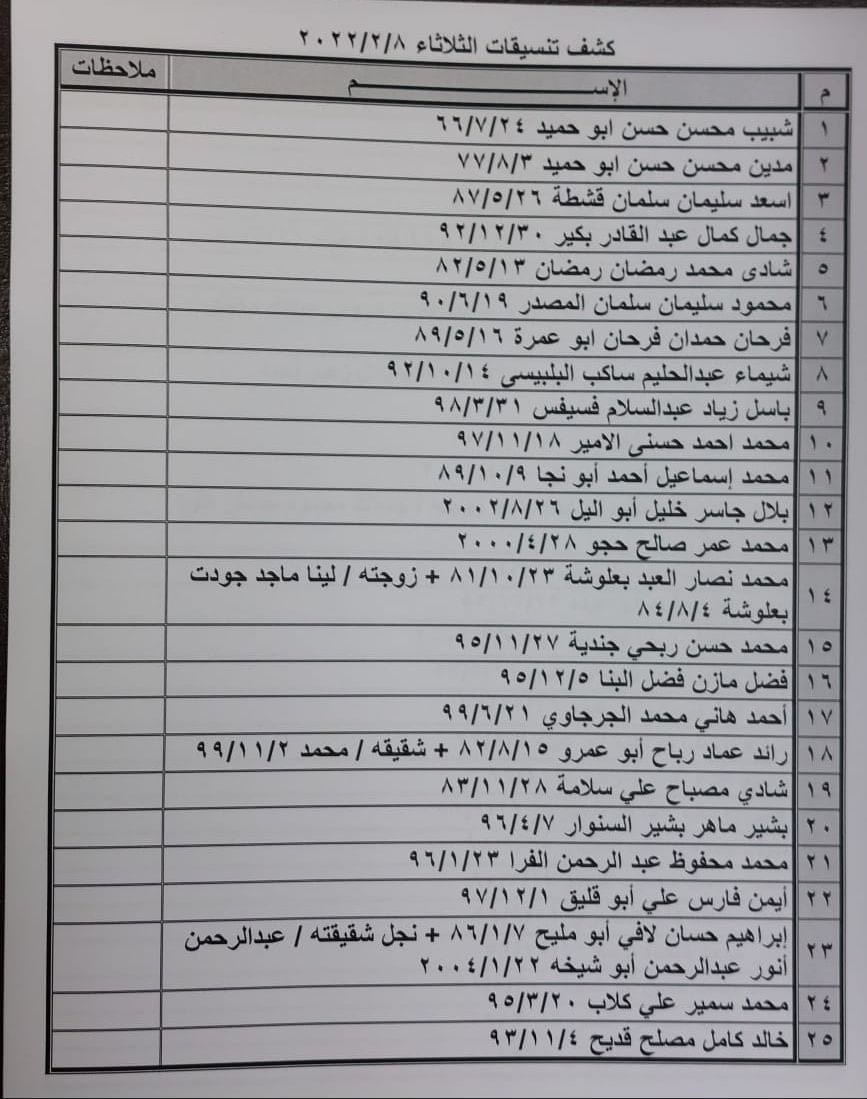 كشف تنسيقات الثلاثاء ٢٠٢٢/٢/٨
م الإســـــــــم ملاحظات
١ شبيب محسن حسن ابو حميد ٦٦/٧/٢٤
٢ مدين محسن حسن ابو حميد ٧٧/٨/٣
٣ اسعد سليمان سلمان قشطة ٨٧/٥/٢٦
٤ جمال كمال عبد القادر بكير ٩٢/١٢/٣٠
٥ شادى محمد رمضان رمضان ٨٢/٥/١٣
٦ محمود سليمان سلمان المصدر ٩٠/٦/١٩
٧ فرحان حمدان فرحان ابو عمرة ٨٩/٥/١٦
٨ شيماء عبدالحليم ساكب البلبيسى ٩٢/١٠/١٤
٩ باسل زياد عبدالسلام فسيفس ٩٨/٣/٣١
١٠ محمد احمد حسنى الامير ٩٧/١١/١٨
١١ محمد إسماعيل أحمد أبو نجا ٨٩/١٠/٩
١٢ بلال جاسر خليل أبو اليل ٢٠٠٢/٨/٢٦
١٣ محمد عمر صالح حجو ٢٠٠٠/٤/٢٨
١٤ محمد نصار العبد بعلوشة ٨١/١٠/٢٣ + زوجته / لينا ماجد جودت
بعلوشة ٨٤/٨/٤
١٥ محمد حسن ربحي جندية ٩٥/١١/٢٧
١٦ فضل مازن فضل البنا ٩٥/١٢/٥
١٧ أحمد هاني محمد الجرجاوي ٩٩/٦/٢١
١٨ رائد عماد رباح أبو عمرو ٨٢/٨/١٥ + شقيقه / محمد ٩٩/١١/٢
١٩ شادي مصباح علي سلامة ٨٣/١١/٢٨
٢٠ بشير ماهر بشير السنوار ٩٦/٤/٧
٢١ محمد محفوظ عبد الرحمن الفرا ٩٦/١/٢٣
٢٢ أيمن فارس علي أبو قليق ٩٧/١٢/١
٢٣ إبراهيم حسان لافي أبو مليح ٨٦/١/٧ + نجل شقيقته / عبدالرحمن
أنور عبدالرحمن أبو شيخه ٢٠٠٤/١/٢٢
٢٤ محمد سمير علي كلاب ٩٥/٣/٢٠
٢٥ خالد كامل مصلح قديح ٩٣/١١/٤